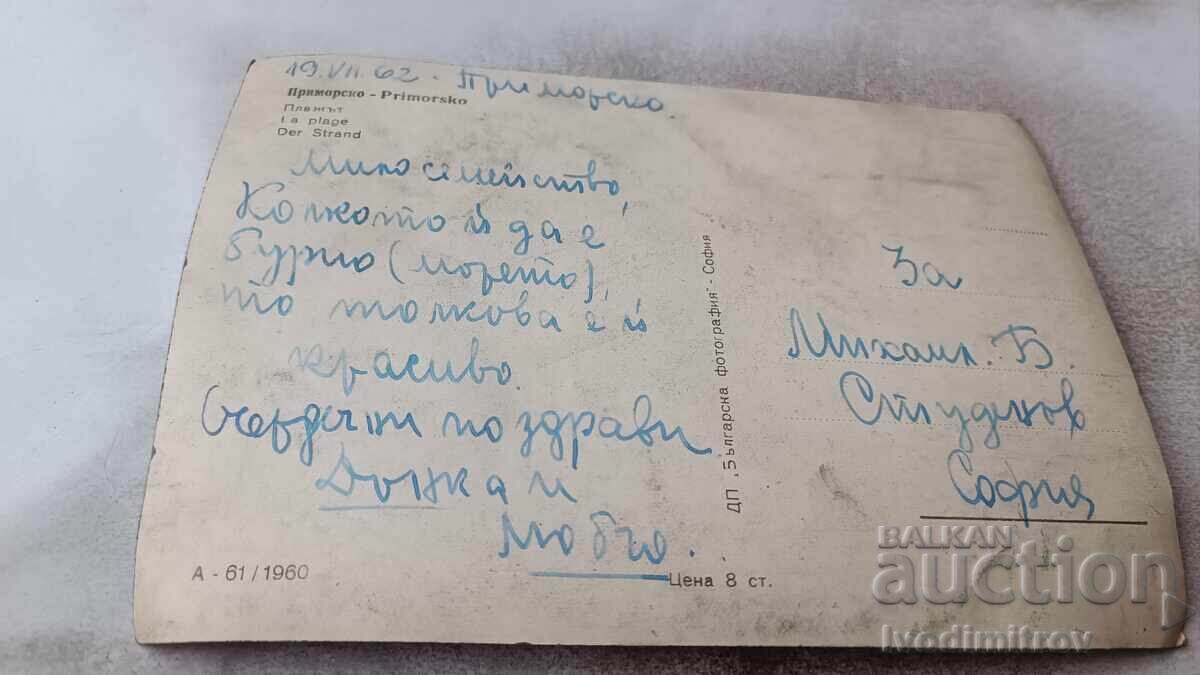 19.VII.62. Приморско.
Приморско - Primorsko
Плажът
La plage
Der Strand
Мило семейство,
Колкото й да е
бурно (морето),
то толкова е й
красиво.
Сърдечни поздрави
Донка и
Любчо.
А - 61/1960
Цена 8 ст.
ДП „Българска фотография" - София
За
Михаил. Б.
Студенов
София
BALKAN
auction
Ivodimitrov